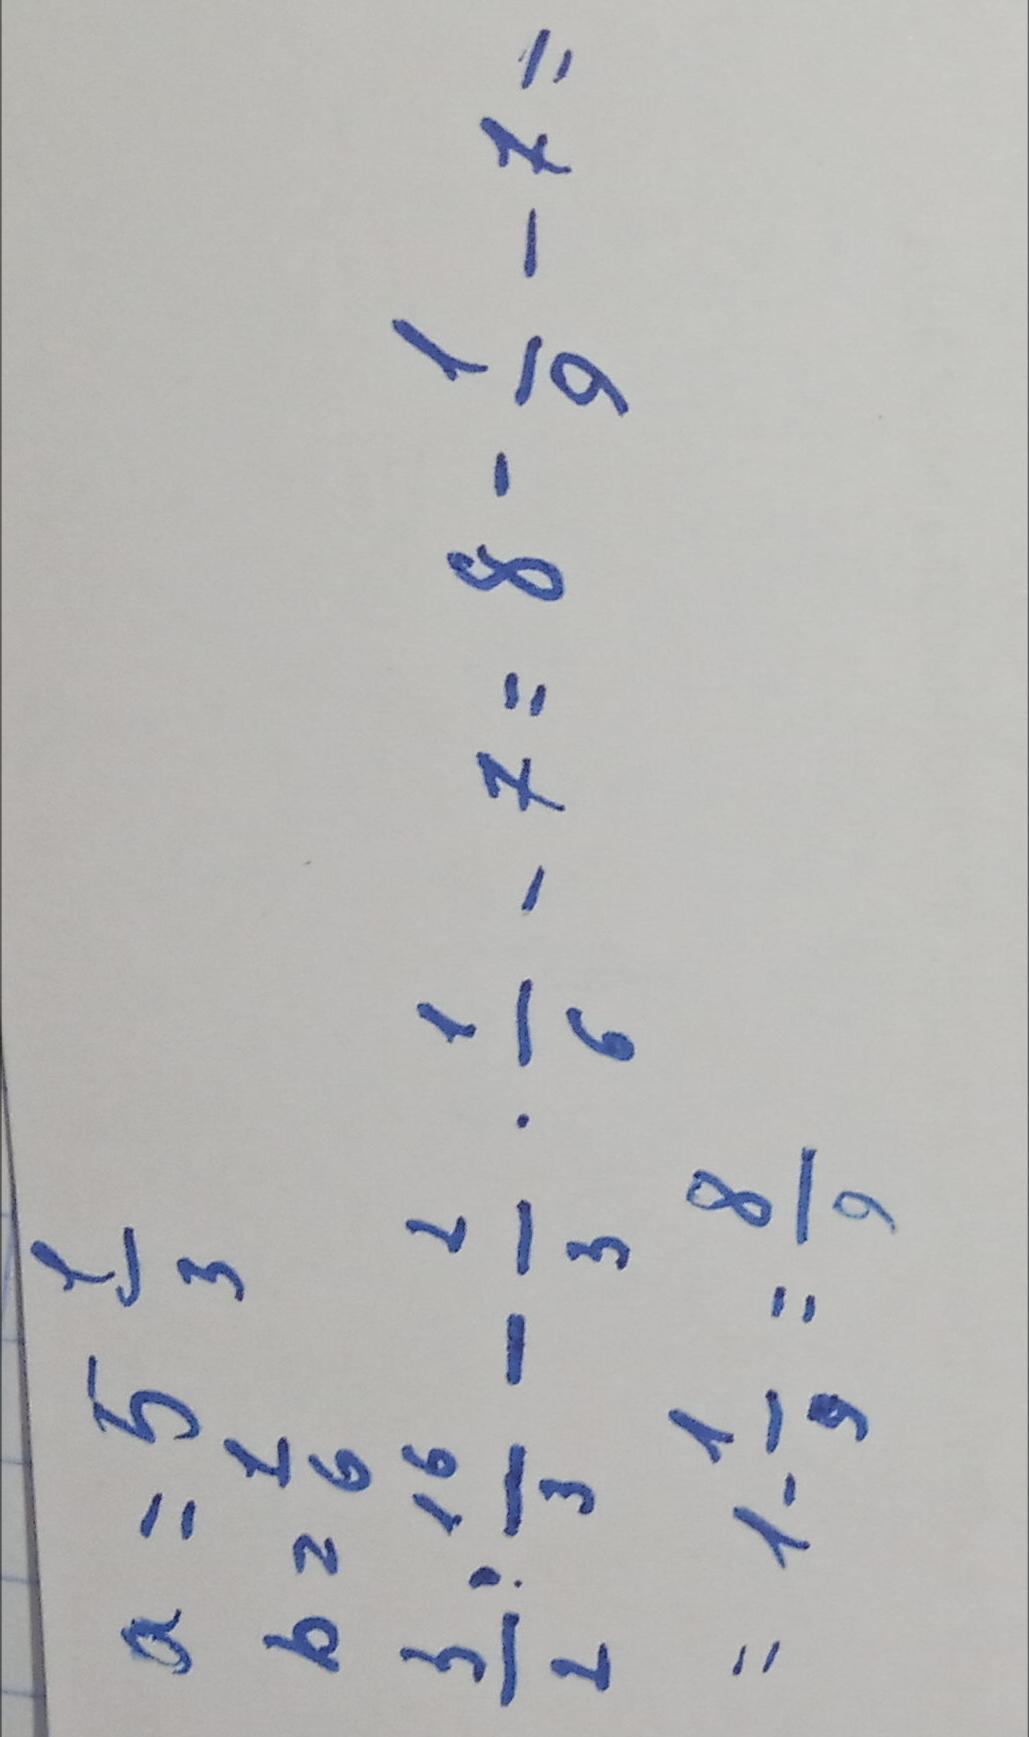 a = 5 1/3
b = 1/6
3/2 · 16/3 - 2/3 · 1/6 - 7 = 8 - 1/9 - 7 =
= 1 - 1/9 = 8/9